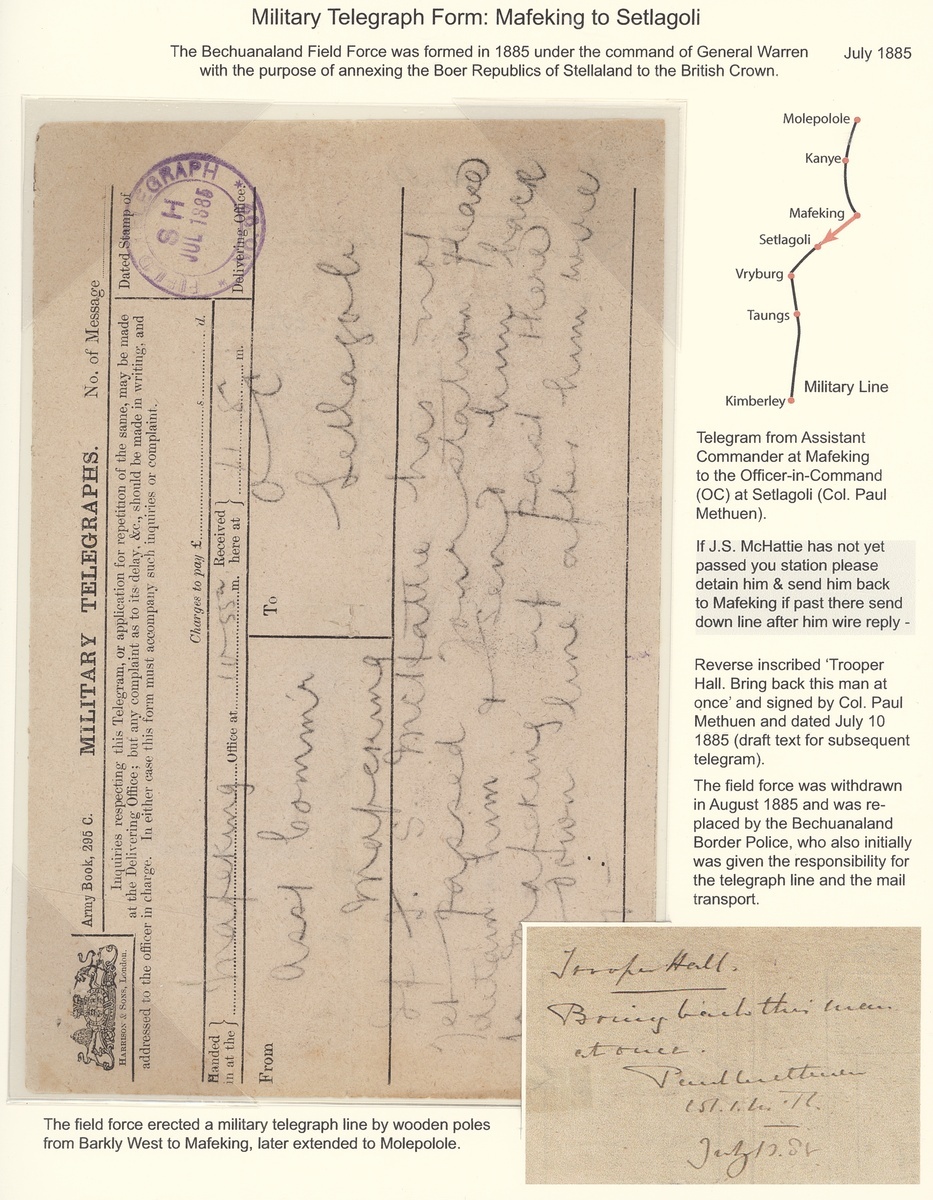 Military Telegraph Form: Mafeking to Setlagoli
The Bechuanaland Field Force was formed in 1885 under the command of General Warren
with the purpose of annexing the Boer Republics of Stellaland to the British Crown.
July 1885
Army Book, 295 C.
MILITARY TELEGRAPHS.
No. of Message
Inquiries respecting this Telegram, or application for repetition of the same, may be made
at the Delivering Office; but any complaint as to its delay, &c., should be made in writing, and
addressed to the officer in charge. In either case this form must accompany such inquiries or complaint.
HARRISON & SONS, London.
Dated Stamp of
Delivering Office
FIELD TELEGRAPH
SH
JUL 1885
Charges to pay £ s. d.
Handed in at the } Mafeking Office at 11-55 m. Received here at } m.
From
Asst Commr
Mafeking
To
O C
Setlagoli
If J. S. McHattie has not
yet passed your station please
detain him & send him back
to Mafeking if past there send
down line after him wire
Molepolole
Kanye
Mafeking
Setlagoli
Vryburg
Taungs
Kimberley
Military Line
Telegram from Assistant
Commander at Mafeking
to the Officer-in-Command
(OC) at Setlagoli (Col. Paul
Methuen).
If J.S. McHattie has not yet
passed you station please
detain him & send him back
to Mafeking if past there send
down line after him wire reply -
Reverse inscribed ‘Trooper
Hall. Bring back this man at
once’ and signed by Col. Paul
Methuen and dated July 10
1885 (draft text for subsequent
telegram).
The field force was withdrawn
in August 1885 and was re-
placed by the Bechuanaland
Border Police, who also initially
was given the responsibility for
the telegraph line and the mail
transport.
Trooper Hall.
Bring back this man
at once.
Paul Methuen
The field force erected a military telegraph line by wooden poles
from Barkly West to Mafeking, later extended to Molepolole.